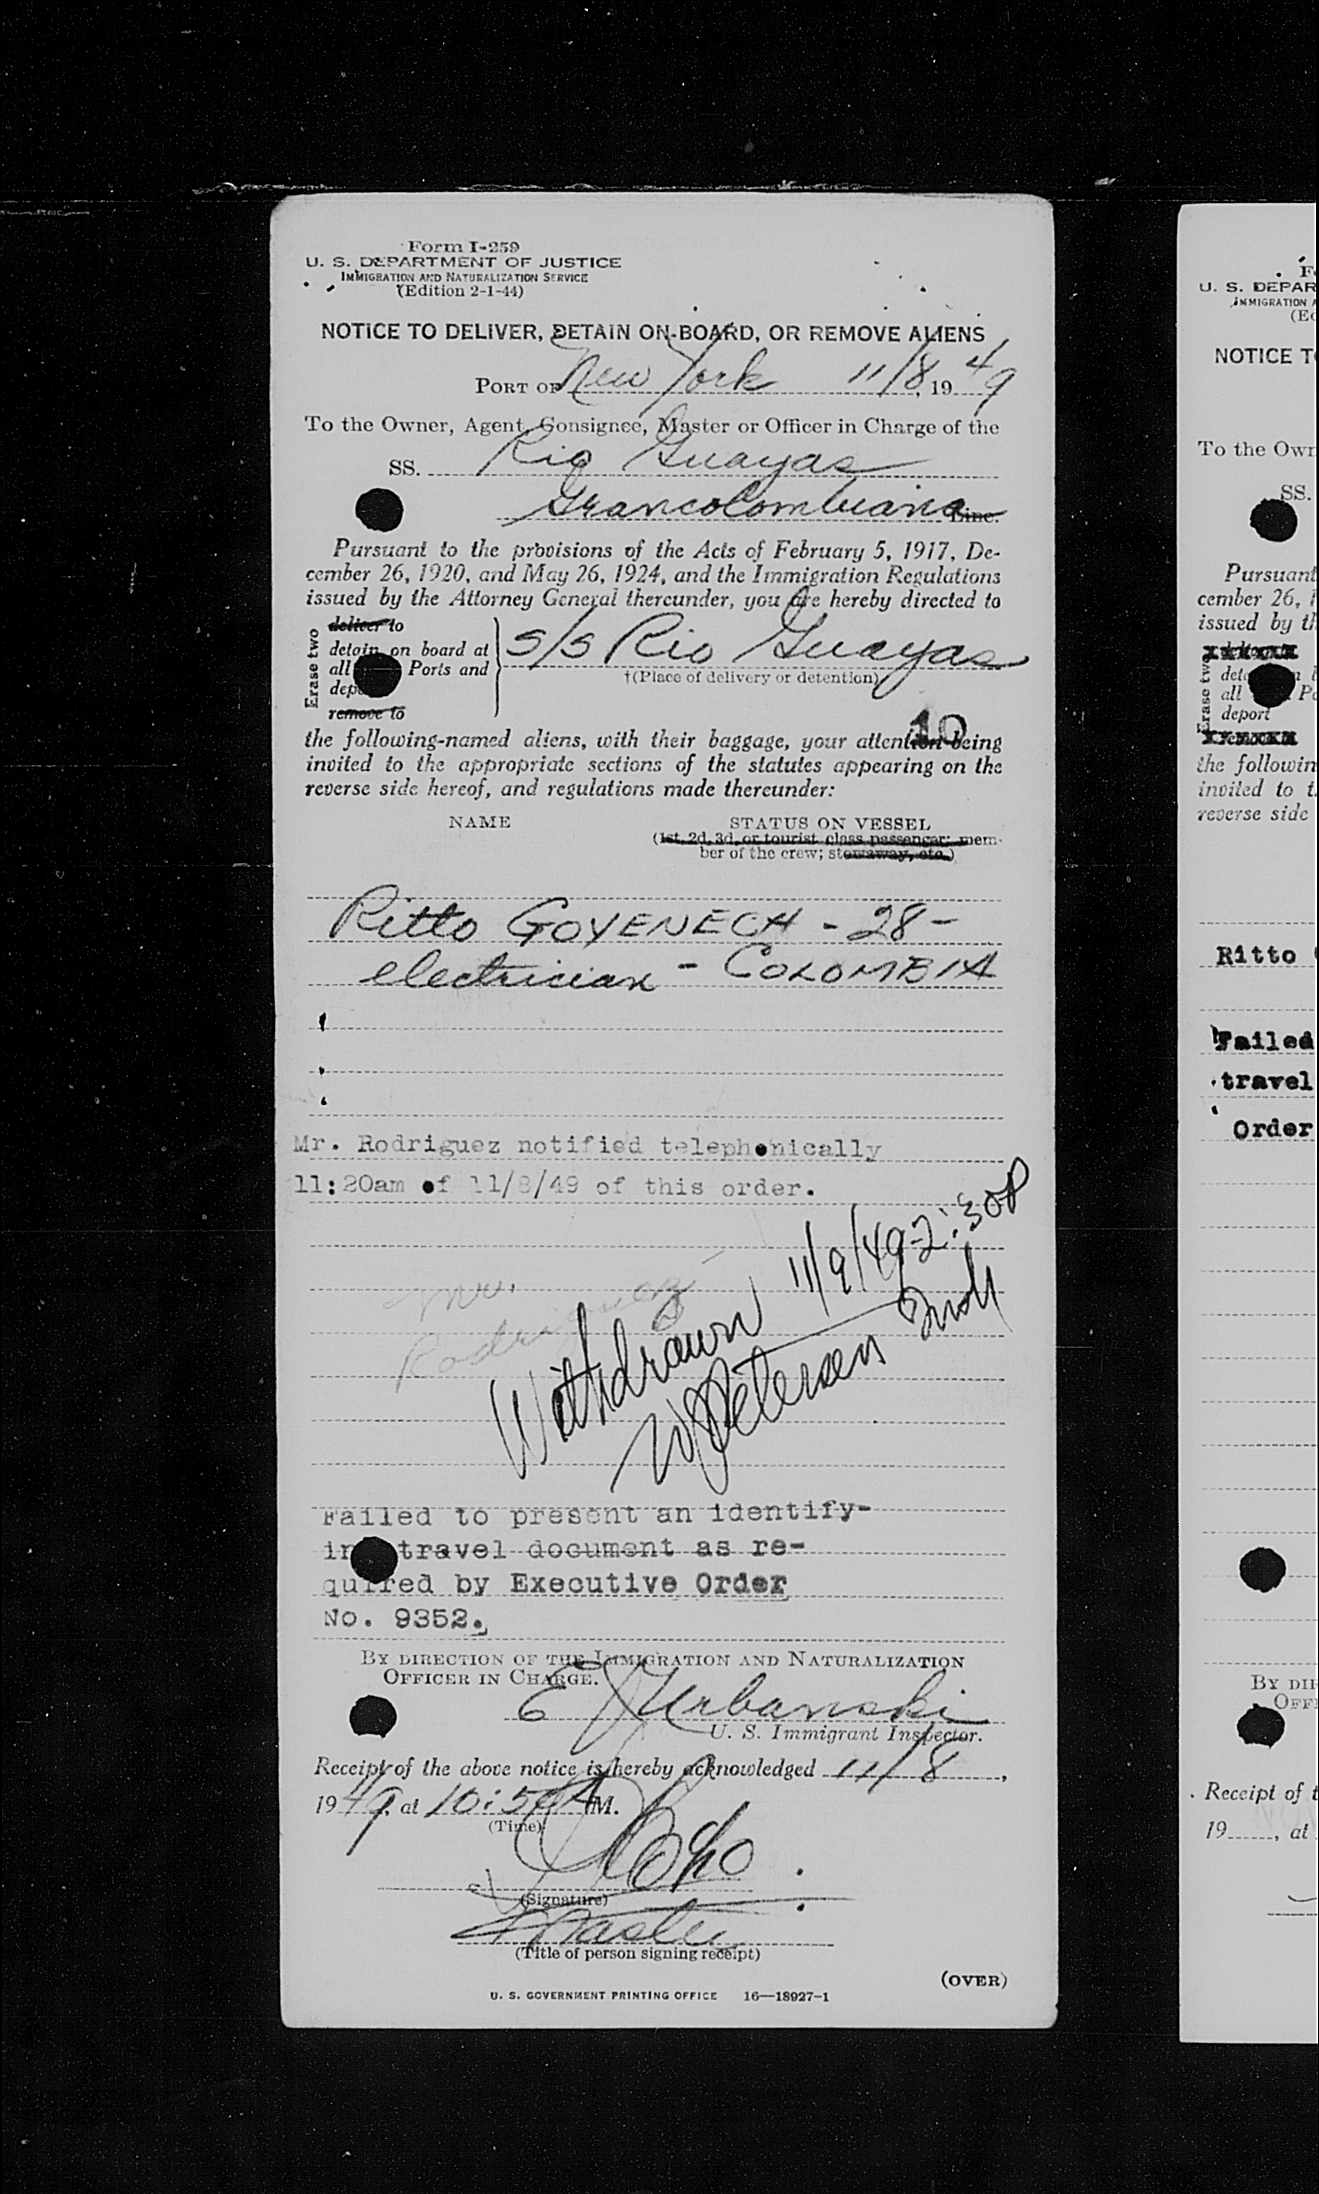 Form I-259
U. S. DEPARTMENT OF JUSTICE
IMMIGRATION AND NATURALIZATION SERVICE
(Edition 2-1-44)
NOTICE TO DELIVER, DETAIN ON BOARD, OR REMOVE ALIENS
PORT OF New York 11/8, 1949
To the Owner, Agent, Consignee, Master or Officer in Charge of the
SS. Rio Guayas
Grancolombiana Line.
Pursuant to the provisions of the Acts of February 5, 1917, De-
cember 26, 1920, and May 26, 1924, and the Immigration Regulations
issued by the Attorney General thereunder, you are hereby directed to
Erase two
deliver to
detain on board at
all Ports and
remove to
S/S Rio Guayas
†(Place of delivery or detention)
10
the following-named aliens, with their baggage, your attention being
invited to the appropriate sections of the statutes appearing on the
reverse side hereof, and regulations made thereunder:
NAME STATUS ON VESSEL
(1st, 2d, 3d, or tourist class passenger; mem-
ber of the crew; stowaway, etc.)
Ritto GOYENECH - 28 -
electrician - COLOMBIA
Mr. Rodriguez notified telephonically
11:20am of 11/8/49 of this order.
Mr.
Rodriguez
Withdrawn 11/9/49-2:30P
W Petersen
Failed to present an identify-
ing travel document as re-
quired by Executive Order
No. 9352.
BY DIRECTION OF THE IMMIGRATION AND NATURALIZATION
OFFICER IN CHARGE.
E J Urbanski
U. S. Immigrant Inspector.
Receipt of the above notice is hereby acknowledged 11/8,
1949, at 10:50 AM.
(Time)
(Signature)
Master
(Title of person signing receipt)
(OVER)
U. S. GOVERNMENT PRINTING OFFICE 16—18927-1
U. S. DEPAR
IMMIGRATION
NOTICE T
To the Own
SS.
Pursuant
cember 26,
issued by th
Erase two
all
deport
the followin
invited to t
reverse side
Ritto
Failed
travel
Order
BY DIR
OFFI
Receipt of t
19......, at